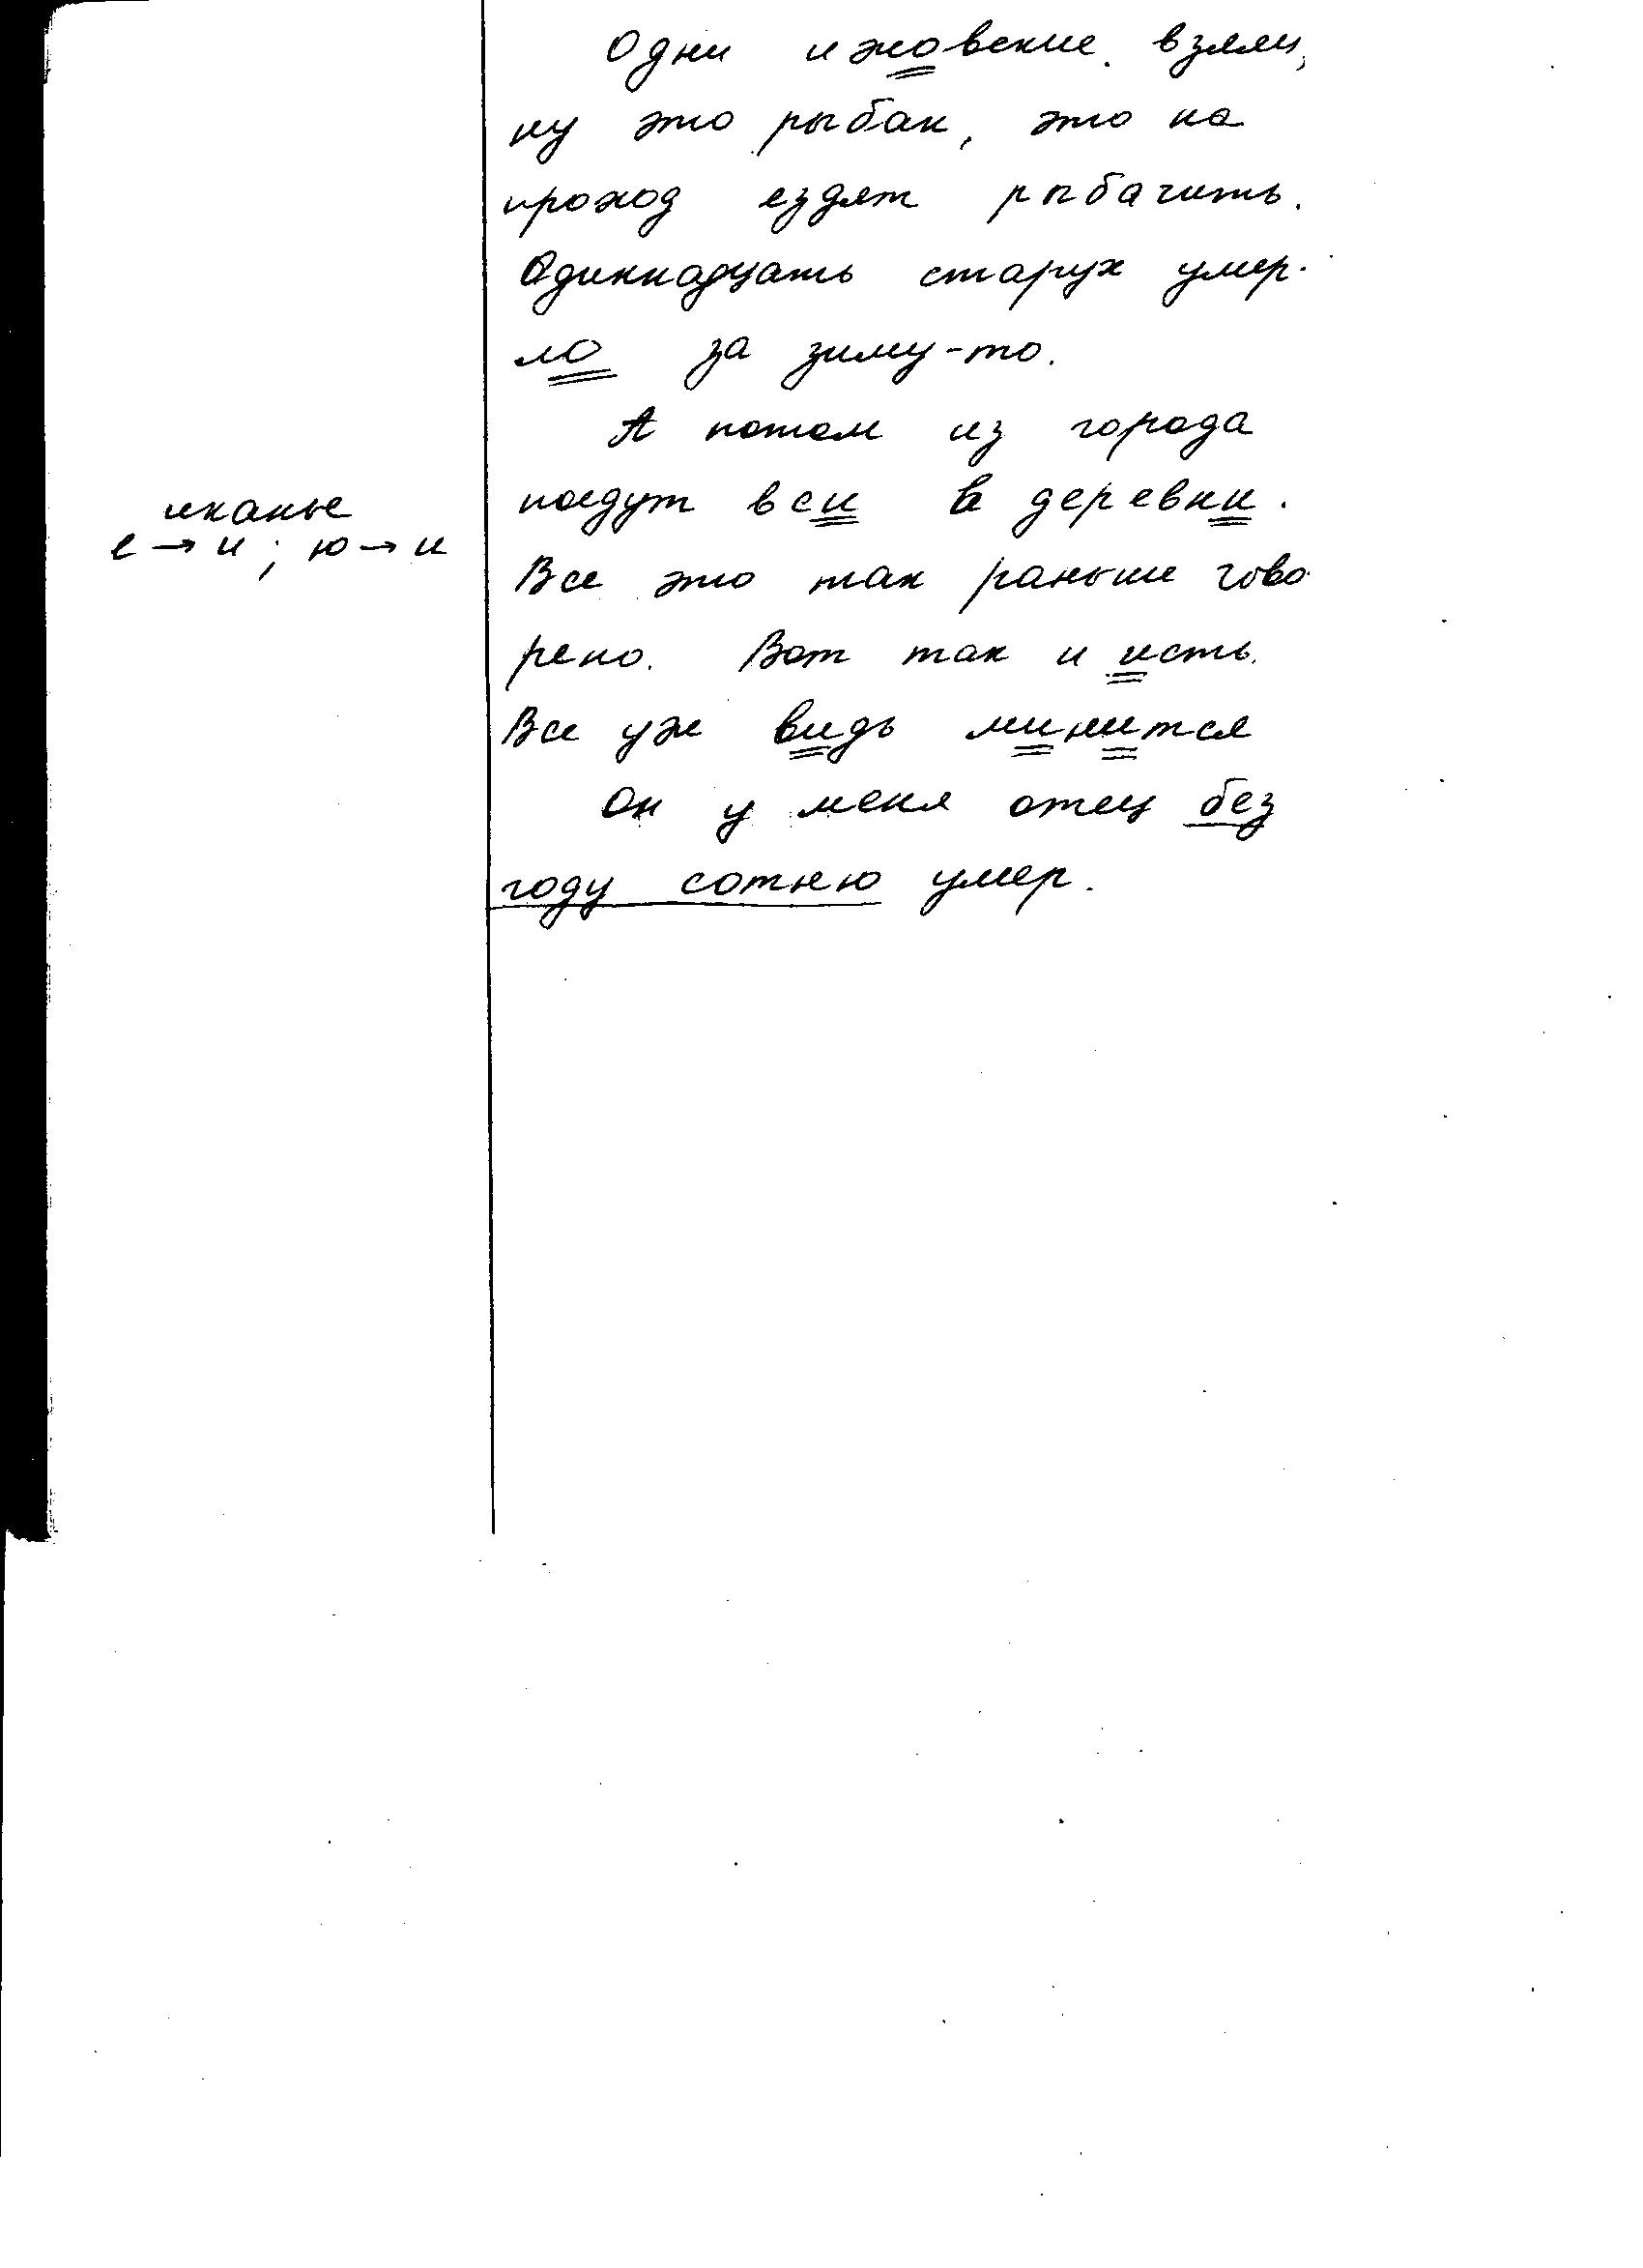 Одни ижовские взяли,
ну это рыбак, это на
проход ездят рыбачить.
Одиннадцать старух умер-
ло за зиму-то.
А потом из города
поедут вси в деревни.
иканье
е → и ; ю → и
Все это так раньше гово-
рено. Вот так и исть.
Все уж видь минится
Он у меня отец без
году сотню умер.